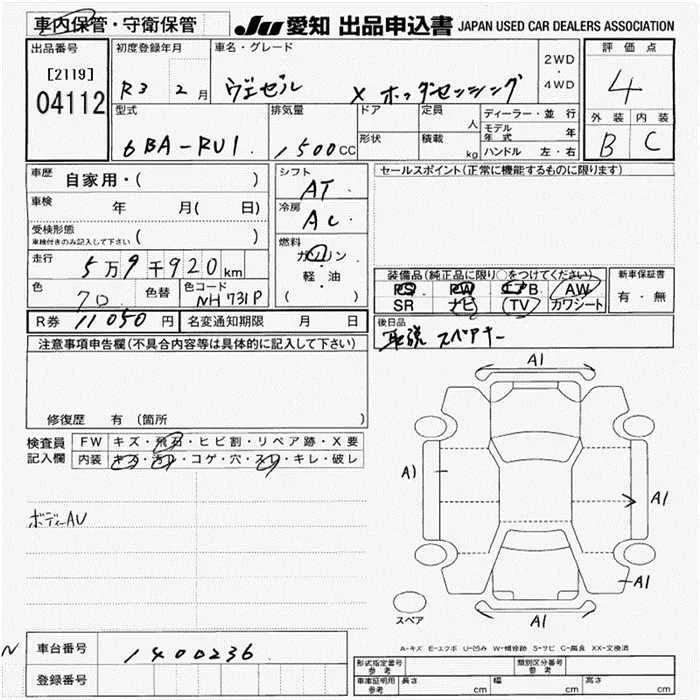 車内保管・守衛保管
JU 愛知 出品申込書 JAPAN USED CAR DEALERS ASSOCIATION
出品番号
[2119]
04112
初度登録年月
R3 2月
車名・グレード
ヴェゼル X ホンダセンシング
2WD
・
4WD
評価点
4
外装 内装
B C
型式
6BA-RU1
排気量
1500CC
ドア
形状
定員
人
積載
kg
ディーラー・並行
モデル年式 年
ハンドル 左・右
車歴 自家用・( )
車検 年 月( 日)
受検形態
車検付きのみ記入して下さい ( )
走行 5万9千920km
色 色替 色コード
NH731P
シフト
AT
冷房
AC
燃料
ガソリン
・
軽・油
( )
セールスポイント(正常に機能するものに限ります)
装備品(純正品に限り○をつけてください)
PS PW エアB AW
SR ナビ TV カワシート
新車保証書
有・無
R券 11050円
名変通知期限 月 日
後日品
取説 スペアキー
注意事項申告欄(不具合内容等は具体的に記入して下さい)
修復歴 有 (箇所 )
検査員
記入欄
FW キズ・飛石・ヒビ割・リペア跡・X要
内装 キズ・汚レ・コゲ・穴・スレ・キレ・破レ
ボディーAU
A1
A1
A1
A1
A1
スペア
A-キズ E-エクボ U-凹み W-補修跡 S-サビ C-腐食 XX-交換済
N
車台番号 1400236
登録番号
形式指定番号
参考
類別区分番号
参考
車庫証明用
参考
長さ cm
幅 cm
高さ cm